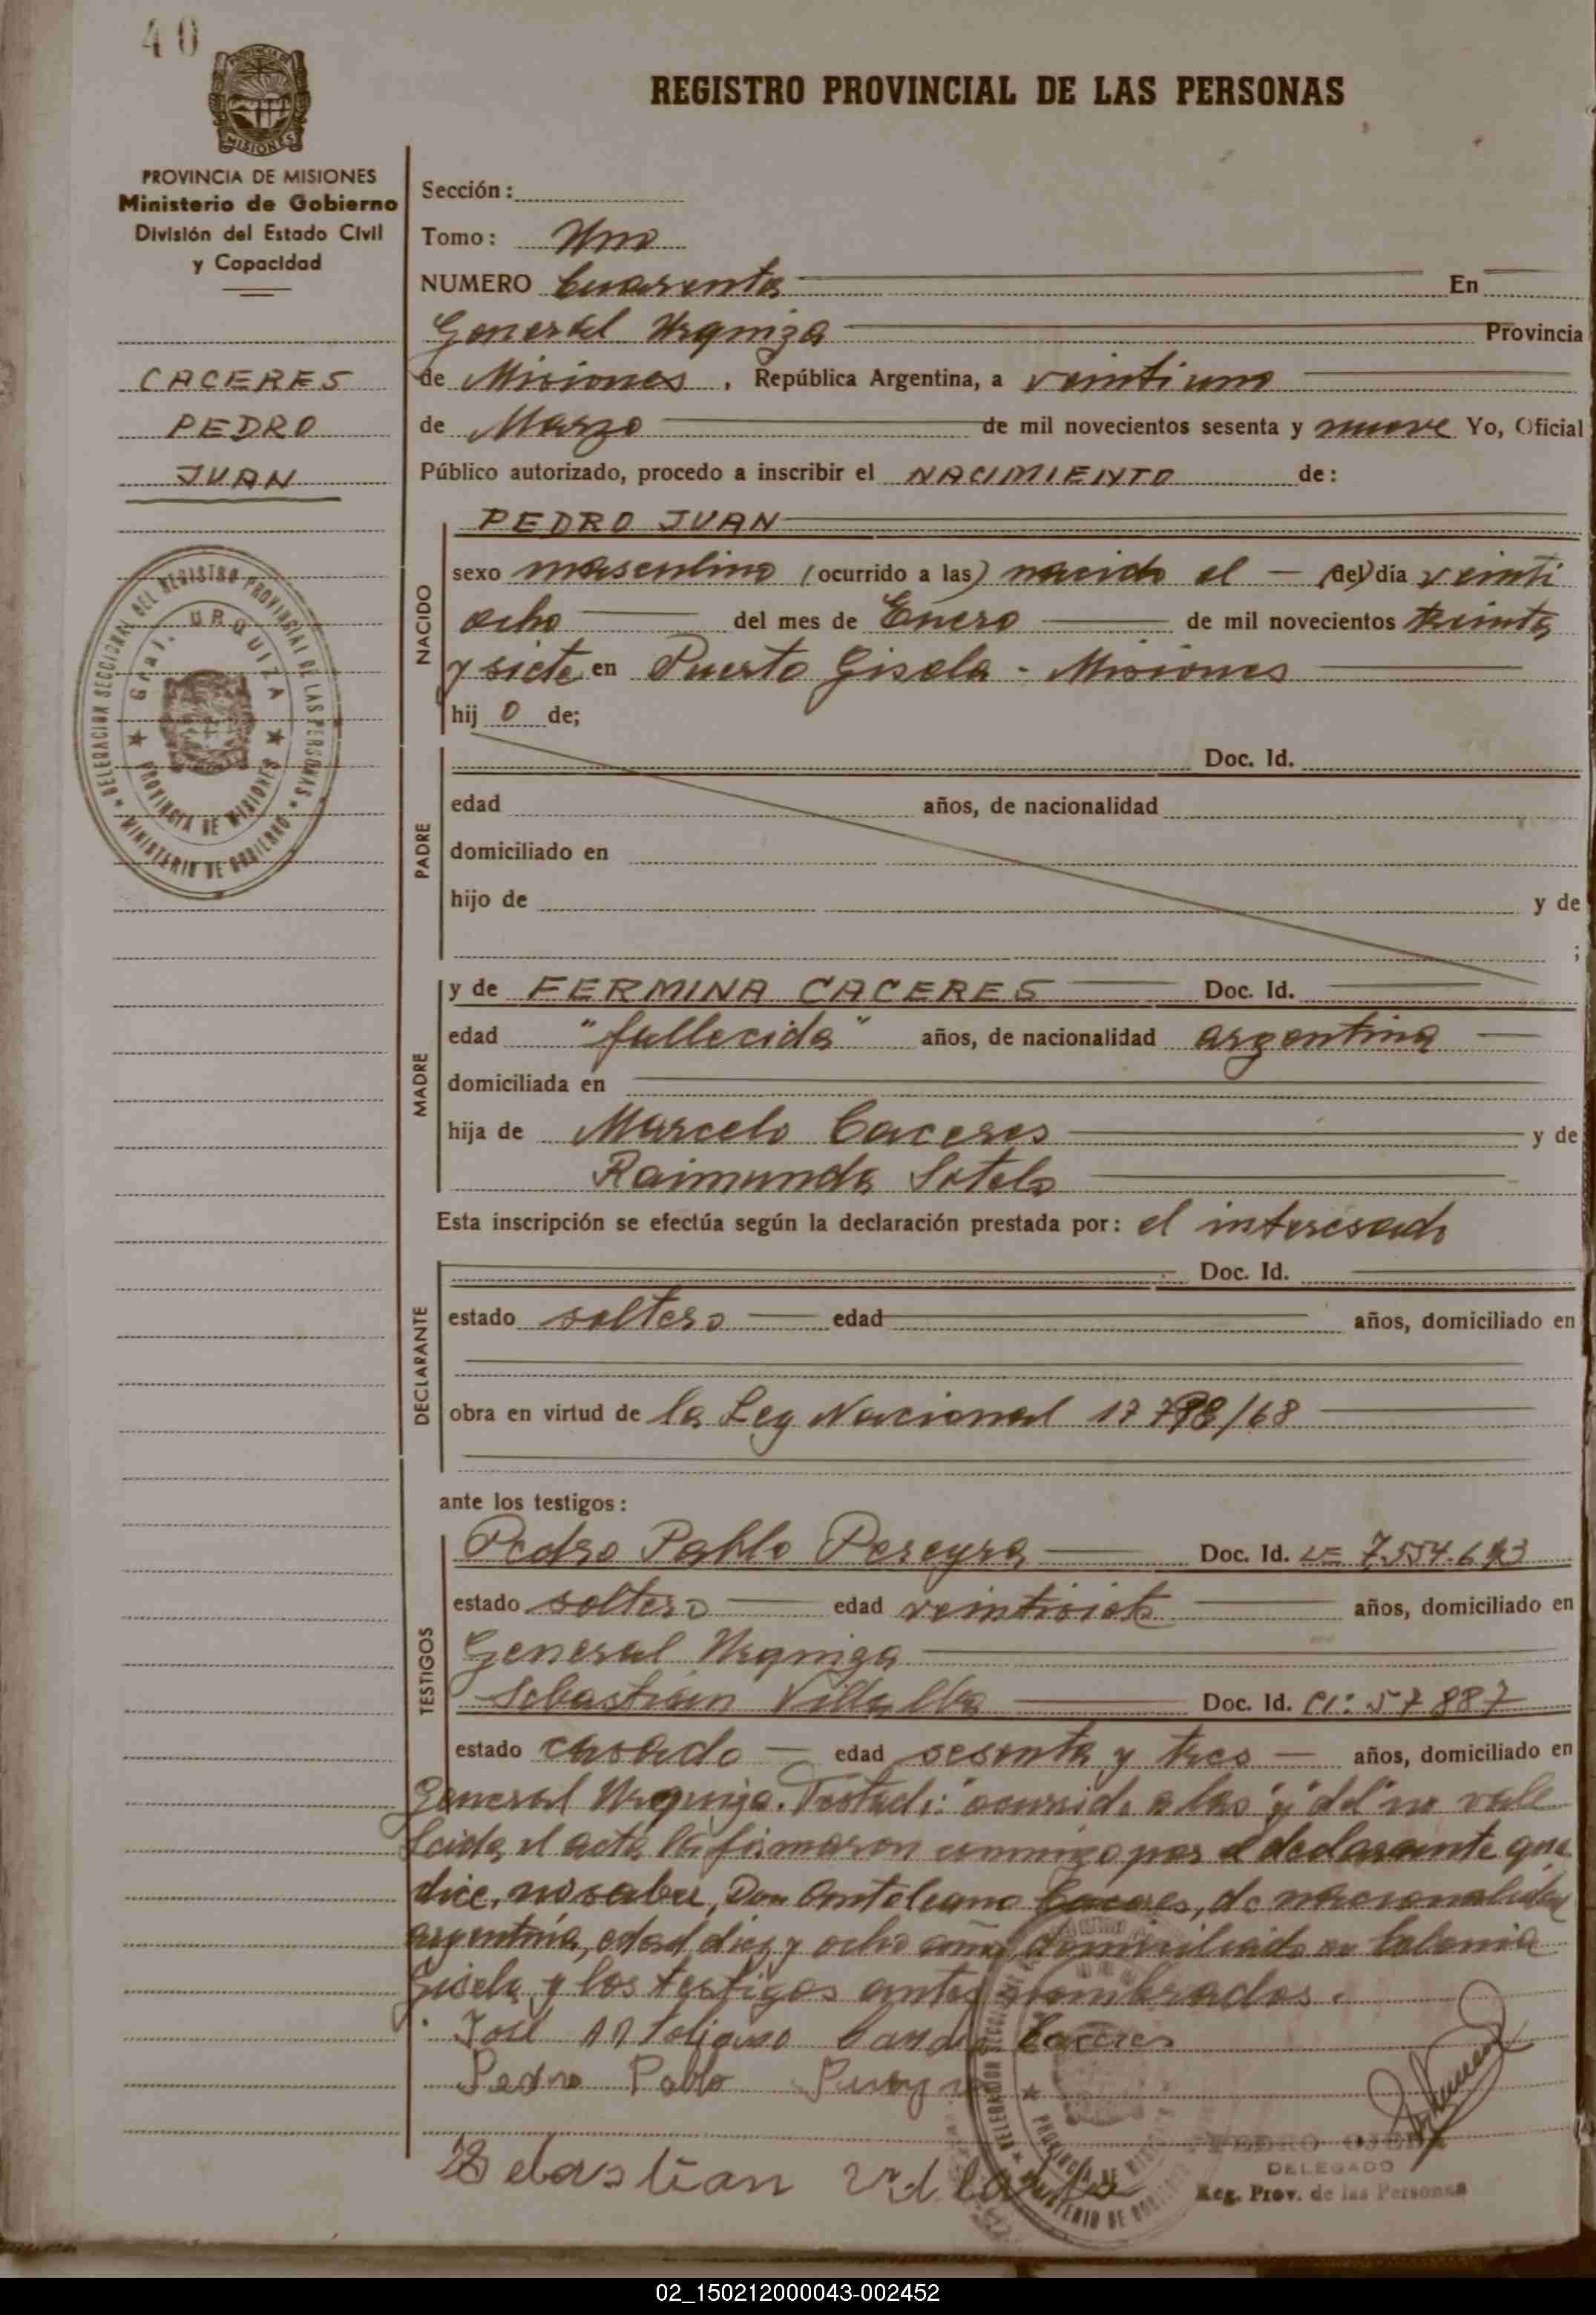 40
REGISTRO PROVINCIAL DE LAS PERSONAS
PROVINCIA DE MISIONES
Ministerio de Gobierno
División del Estado Civil
y Capacidad
CACERES
PEDRO
JUAN
DELEGACION SECCIONAL DEL REGISTRO PROVINCIAL DE LAS PERSONAS
Gral. URQUIZA
PROVINCIA DE MISIONES
MINISTERIO DE GOBIERNO
Sección:
Tomo: Uno
NUMERO Cuarenta En
General Urquiza Provincia
de Misiones, República Argentina, a veintiuno
de Marzo de mil novecientos sesenta y nueve Yo, Oficial
Público autorizado, procedo a inscribir el NACIMIENTO de:
NACIDO
PEDRO JUAN
sexo masculino (ocurrido a las) nacido el — (del) día veinti
ocho del mes de Enero de mil novecientos treinta
y siete en Puerto Gisela - Misiones
hij o de;
PADRE
Doc. Id.
edad años, de nacionalidad
domiciliado en
hijo de y de
;
MADRE
y de FERMINA CACERES Doc. Id.
edad "fallecida" años, de nacionalidad argentina
domiciliada en
hija de Marcelo Caceres y de
Raimunda Sotelo
Esta inscripción se efectúa según la declaración prestada por: el interesado
DECLARANTE
Doc. Id.
estado soltero edad años, domiciliado en
obra en virtud de la Ley Nacional /68
ante los testigos:
TESTIGOS
Pedro Pablo Pereyra Doc. Id. LE 7.554.6
estado soltero edad veintisiete años, domiciliado en
General Urquiza
Sebastián Villalba Doc. Id. CI: 57887
estado casado — edad sesenta y tres — años, domiciliado en
General Urquiza. Testado: "ocurrido a las" y "del" no vale
Leida el acta la firmaron conmigo por el declarante que
dice no saber, Don Caceres, de nacionalidad
argentina, edad diez y ocho años domiciliado en Colonia
Gisela y los testigos antes nombrados.
Caceres
Pedro Pablo
Sebastian
PEDRO OJEDA
DELEGADO
Reg. Prov. de las Personas
02_150212000043-002452